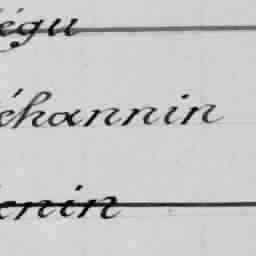 égu
échannin
enin